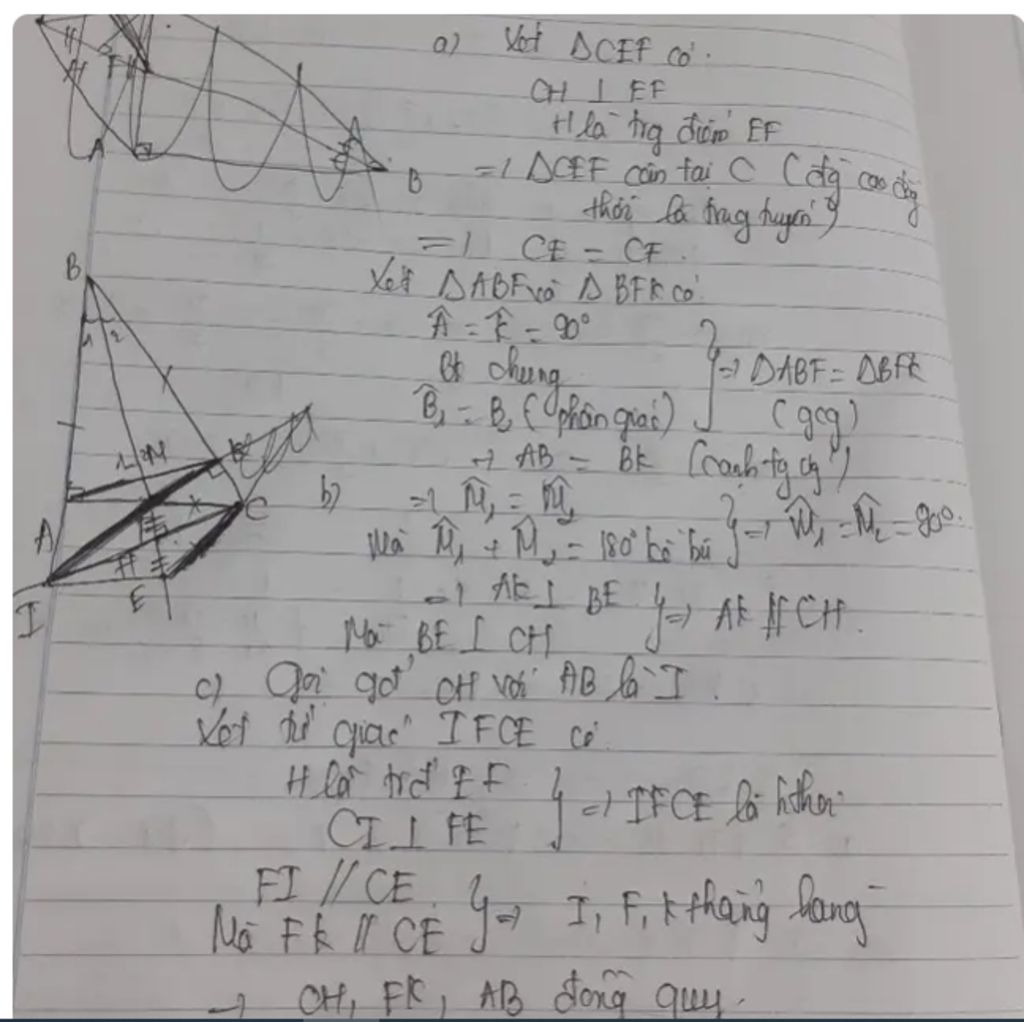 a) Xét ΔCEF có.
CH ⊥ EF
H là trg điểm EF
=> ΔCEF cân tại C (đg cao đg
thời là trug tuyến)
=> CE = CF.
Xét ΔABF và ΔBFK có
Â = K̂ = 90°
chung
B̂₁ = B₂ (phân giác)
=> ΔABF = ΔBFK
(gcg)
=> AB = BK (cạnh tg ứg)
b)
=> M̂₁ = M̂₂
Mà M̂₁ + M̂₂ = 180° kề bù
=> M̂₁ = M̂₂ = 90°.
=> AK ⊥ BE
Mà BE ⊥ CH
=> AK // CH.
c) Gọi gđ CH với AB là I.
Xét tứ giác IFCE có
H là trđ EF
CI ⊥ FE
=> IFCE là hthoi
FI // CE
Mà FK // CE
=> I, F, K thẳng hàng
=> CH, FK, AB đồng quy.
A
B
H
F
A
B
1 2
1 2 M
K
C
A
H
I
E